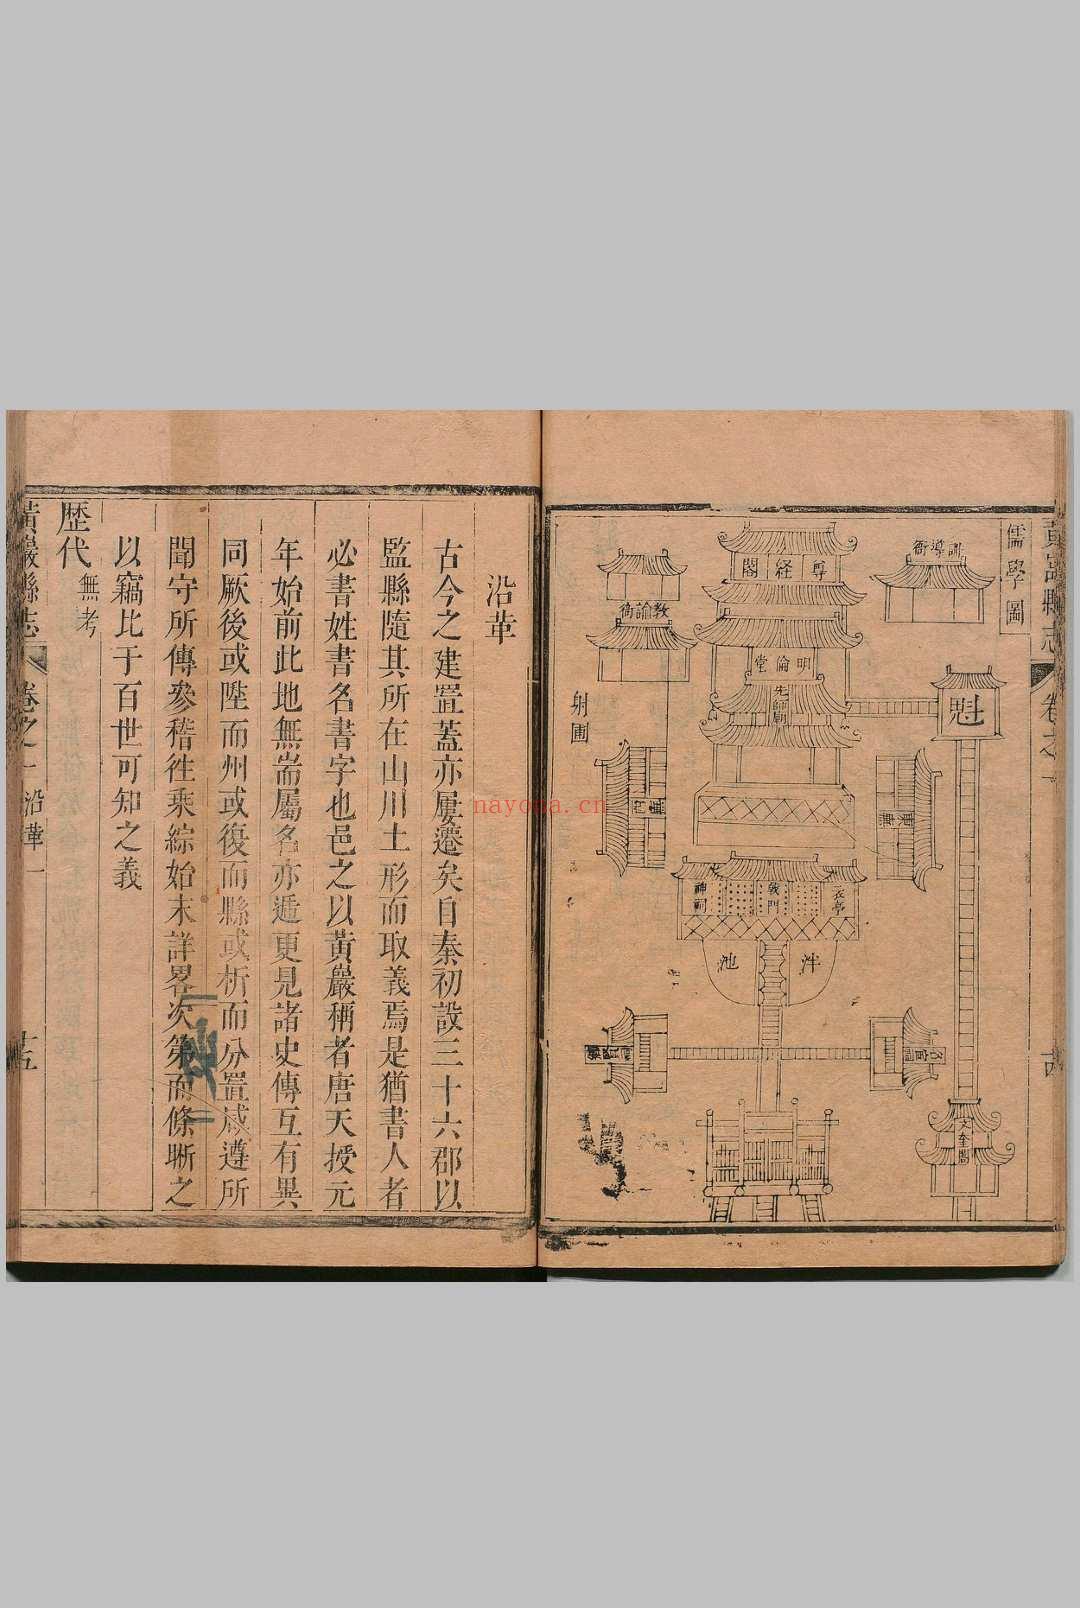 黃巖縣志
卷之一
儒學圖
訓導衙
尊經閣
教諭衙
明倫堂
先師廟
魁
射圃
東廡
神祠
戟門
泮池
名宦祠
文奎閣
沿革
古今之建置蓋亦屢遷矣自秦初設三十六郡以
監縣隨其所在山川土形而取義焉是猶書人者
必書姓書名書字也邑之以黃巖稱者唐天授元
年始前此地無耑屬名亦遞更見諸史傳互有異
同厥後或陞而州或復而縣或析而分置咸遵所
聞守所傳參稽徃乘綜始末詳畧次第而條晰之
以竊比于百世可知之義
歷代無考
黃巖縣志 卷之一 沿革一 十五
nayona.cn